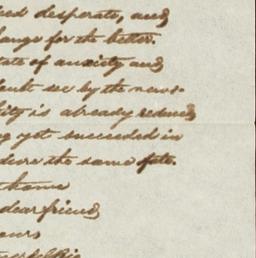 desperate, and
change for the better.
state of anxiety and
doubt see by the news-
is already reduced
yet succeeded in
the same fate.
home
dear friend
yours